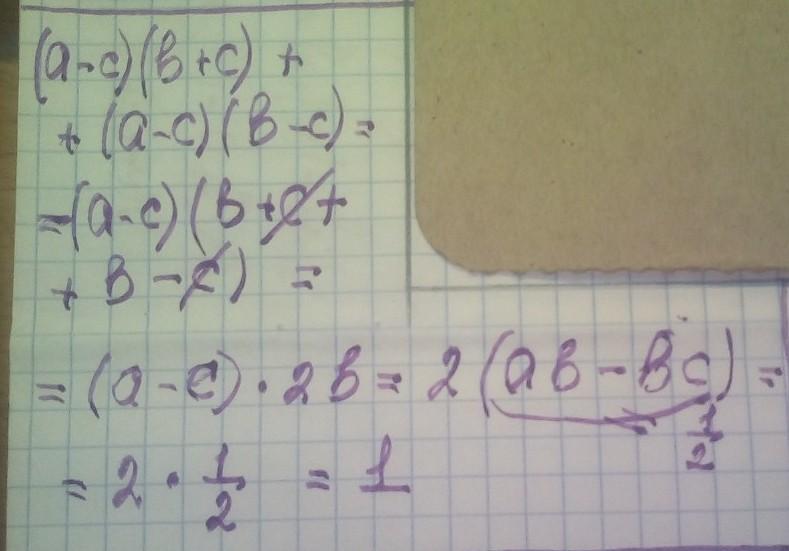 (a-c)(b+c) +
+ (a-c)(b-c) =
=(a-c)(b+c+
+ b - c) =
= (a-c)·2b = 2(ab-bc) =
1/2
= 2 · 1/2 = 1